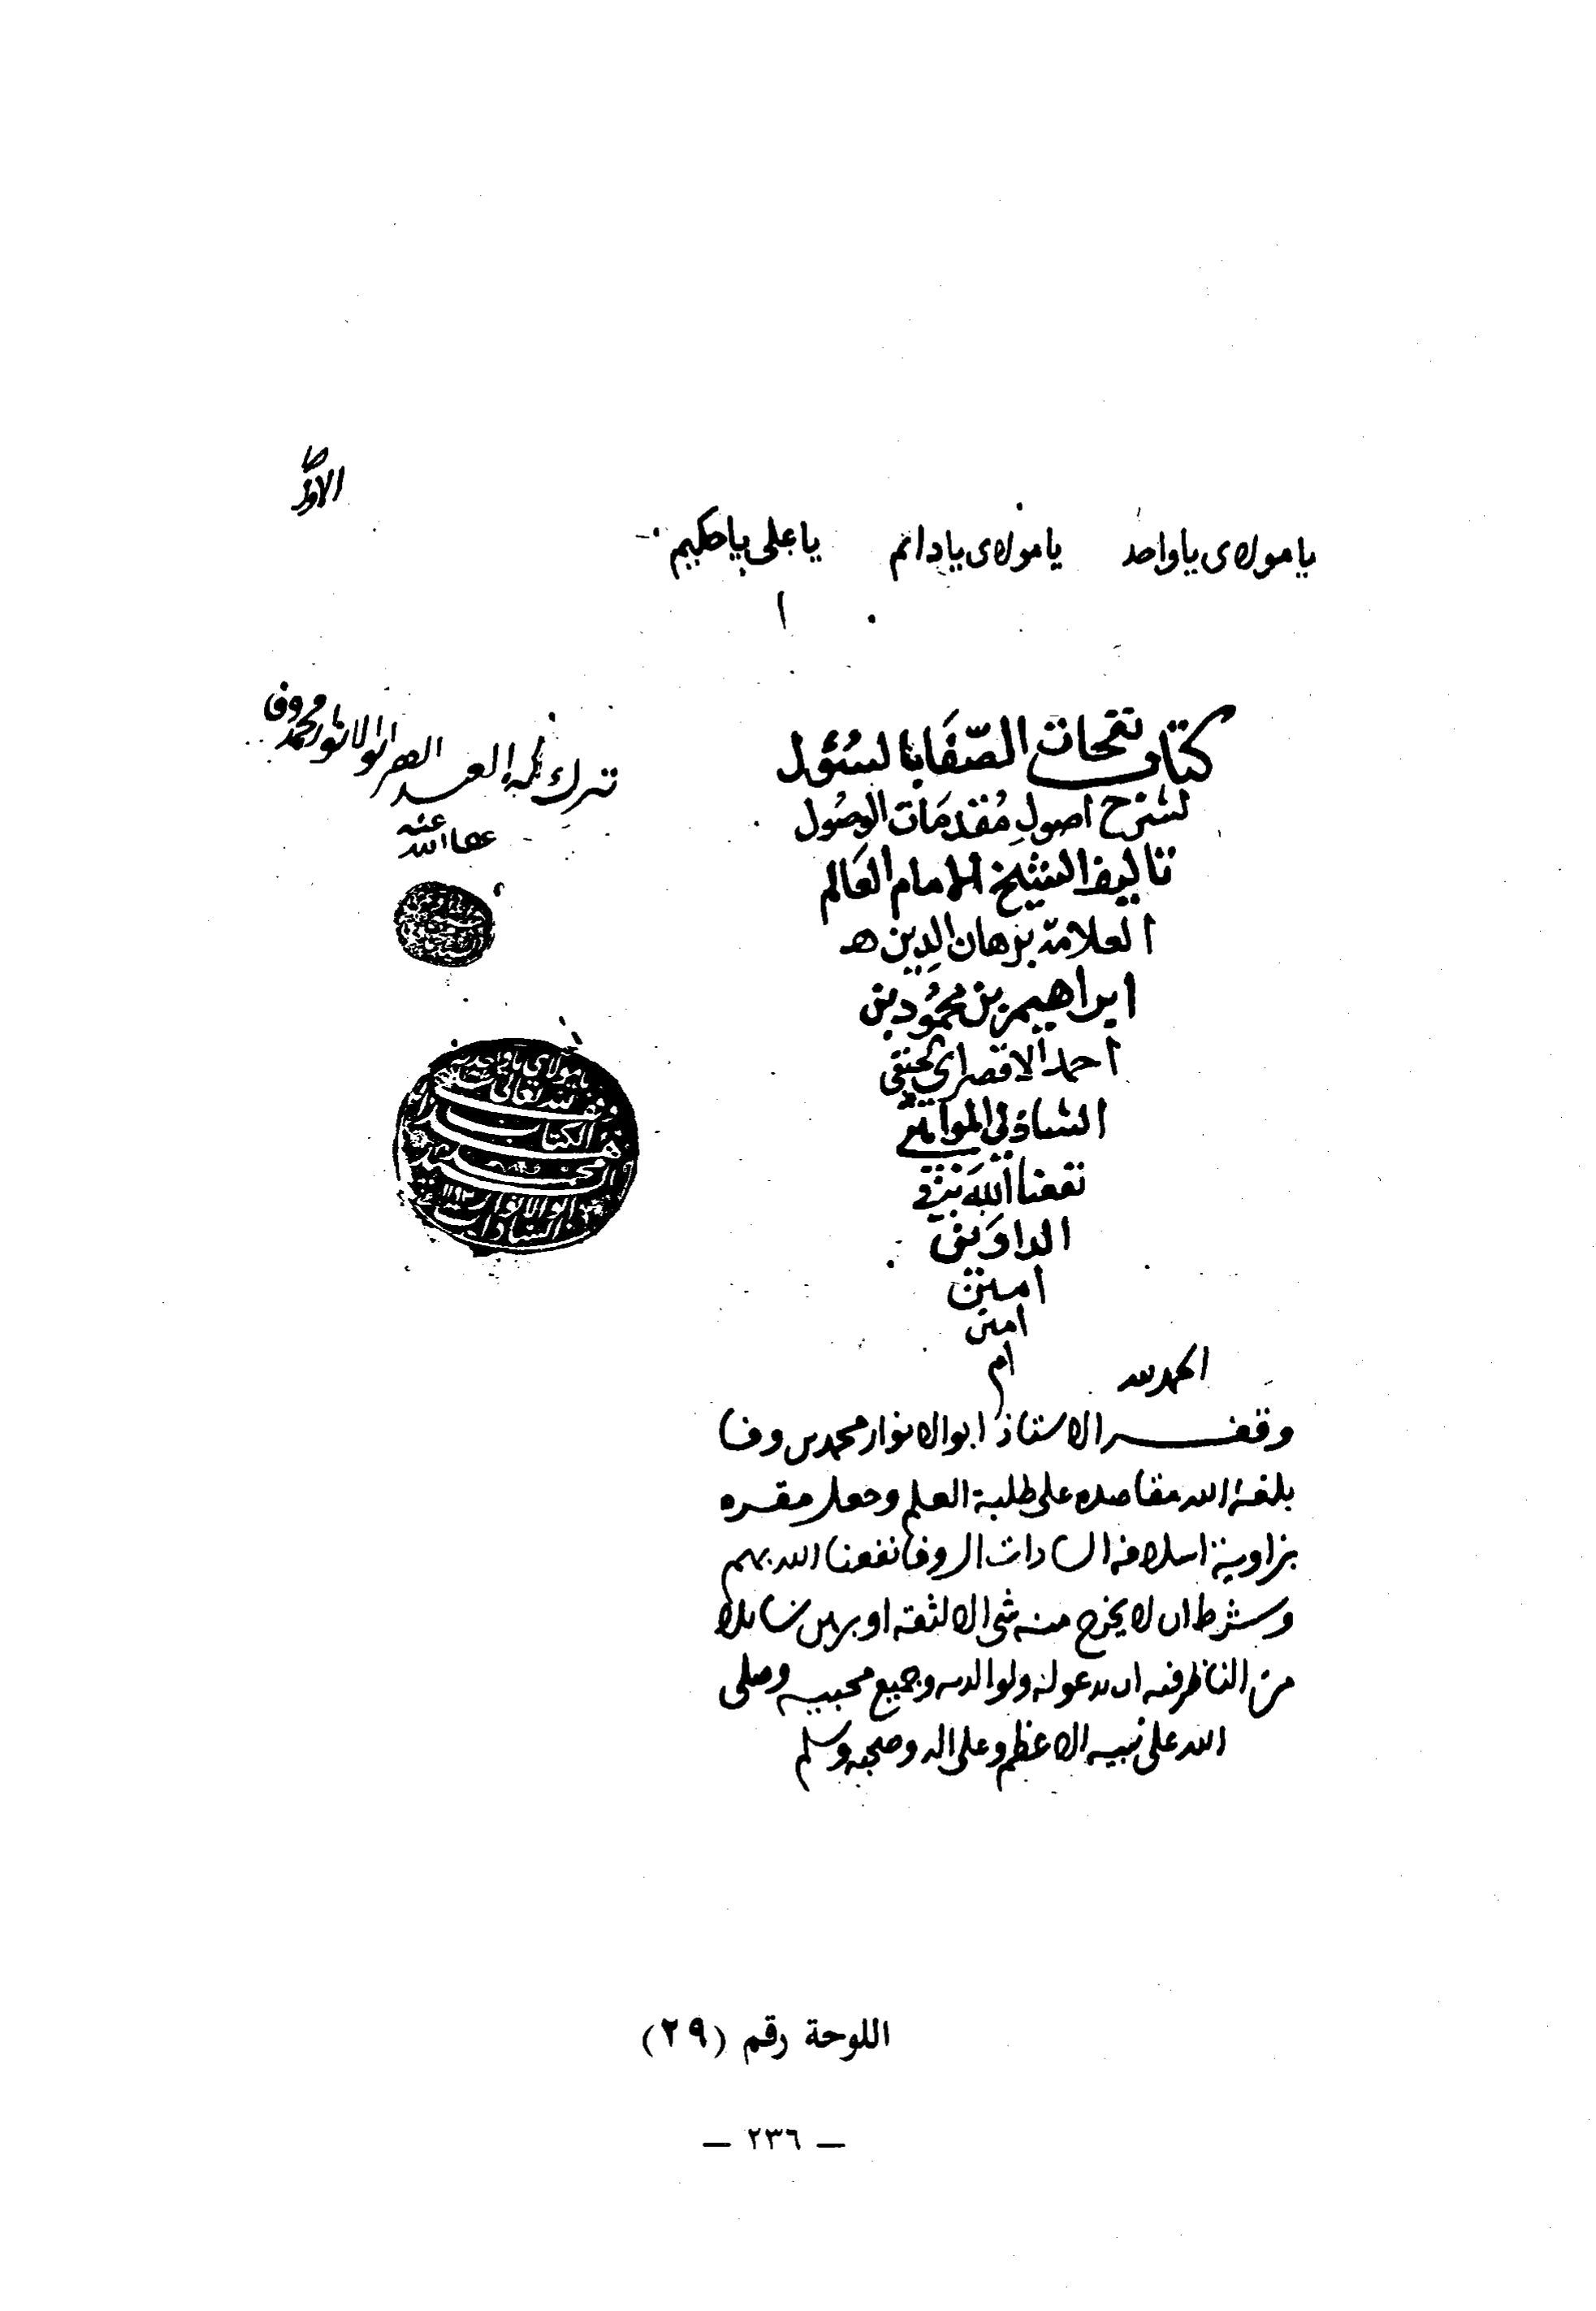 يا مولاى يا واحد يا مولاى يا دائم يا على يا حكيم
كتاب نفحات الصّفا بالسُئول
لشرح اصولِ مُقدمَات الوصُول
تاليف الشيخ الامام العَالم
العلامة برهان الدِين
ابراهيم بن محمُود بن
احمد الاقصراى الحنفى
الشاذلى المواهبى
نفعنا الله به فى
الدارَين
امين
امين
ام
تبرك به العبد الفقير ابو الانوار محمد وفا
عفا الله عنه
يا مولاى يا واحد
لله تعالى
الكتاب
ابو الانوار
السادات
الحمد لله
وقف الاستاذ ابو الانوار محمد بن وفا
بلغه الله مقاصده على طلبة العلم وجعل مقره
بزاوية اسلافه السادات الوفا نفعنا الله بهم
وشرط ان لا يخرج منه شى الا لثقة او برهن سائلا
من الناظر فيه ان يدعو له ولوالديه وجميع محبيه وصلى
الله على نبيه الاعظم وعلى اله وصحبه وسلم
اللوحة رقم (٢٩)
— ٢٣٦ —